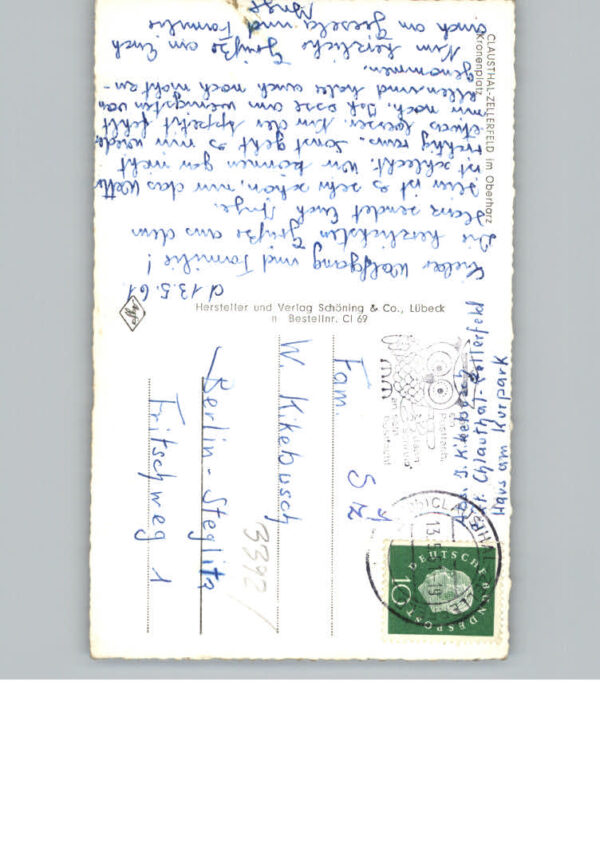 CLAUSTHAL-ZELLERFELD im Oberharz
Kronenplatz
d 13.5.61
Lieber Wolfgang und Familie!
Die herzlichsten Grüße aus dem
Harz sendet Euch Inge.
Hier ist es sehr schön, nur das Wetter
ist schlecht. Wir können gar nicht
richtig raus. Sonst geht es mir wieder
etwas besser. Nur der Appetit fehlt
mir noch. Ich esse am wenigsten von
allen und habe auch noch nicht zu-
genommen.
Nun herzliche Grüße an Euch
auch an Gisela und Familie
Inge
Hersteller und Verlag Schöning & Co., Lübeck
Bestellnr. Cl 69
Agfa
Abs. I. Kikebusch
Chlausthal-Zellerfeld
Haus am Kurpark
13.5
DEUTSCHE BUNDESPOST
10
Fam.
W. Kikebusch
Berlin-Steglitz
Fritschweg 1
3392/